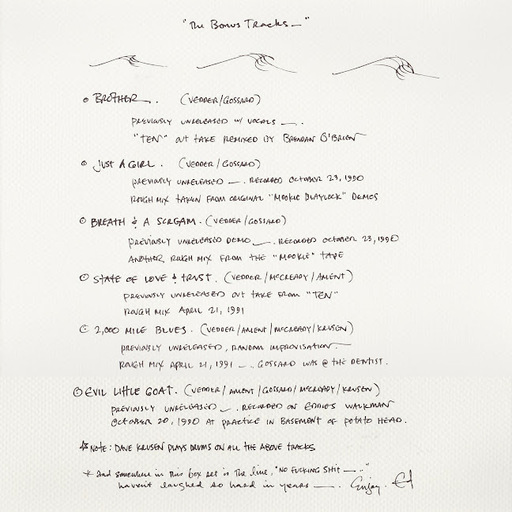 "The Bonus Tracks_"
○ BROTHER_. (VEDDER/GOSSARD)
PREVIOUSLY UNRELEASED W/ VOCALS _.
"TEN" OUT TAKE REMIXED BY BRENDAN O'BRIEN
○ JUST A GIRL. (VEDDER/GOSSARD)
PREVIOUSLY UNRELEASED _. RECORDED OCTOBER 23, 1990
ROUGH MIX TAKEN FROM ORIGINAL "MOOKIE BLAYLOCK" DEMOS
○ BREATH & A SCREAM. (VEDDER/GOSSARD)
PREVIOUSLY UNRELEASED DEMO _. RECORDED OCTOBER 23, 1990
ANOTHER ROUGH MIX FROM THE "MOOKIE" TAPE
○ STATE OF LOVE & TRUST. (VEDDER/MCCREADY/AMENT)
PREVIOUSLY UNRELEASED, OUT TAKE FROM "TEN"
ROUGH MIX APRIL 21, 1991
○ 2,000 MILE BLUES. (VEDDER/AMENT/MCCREADY/KRUSEN)
PREVIOUSLY UNRELEASED, RANDOM IMPROVISATION
ROUGH MIX APRIL 21, 1991 _. GOSSARD WAS @ THE DENTIST.
○ EVIL LITTLE GOAT. (VEDDER/AMENT/GOSSARD/MCCREADY/KRUSEN)
PREVIOUSLY UNRELEASED _. RECORDED ON EDDIE'S WALKMAN
OCTOBER 20, 1990 AT PRACTICE IN BASEMENT OF POTATO HEAD.
☆ NOTE: DAVE KRUSEN PLAYS DRUMS ON ALL THE ABOVE TRACKS
* And somewhere in this box set is the line, "NO FUCKING SHIT _.."
haven't laughed so hard in years _. Enjoy. Ed